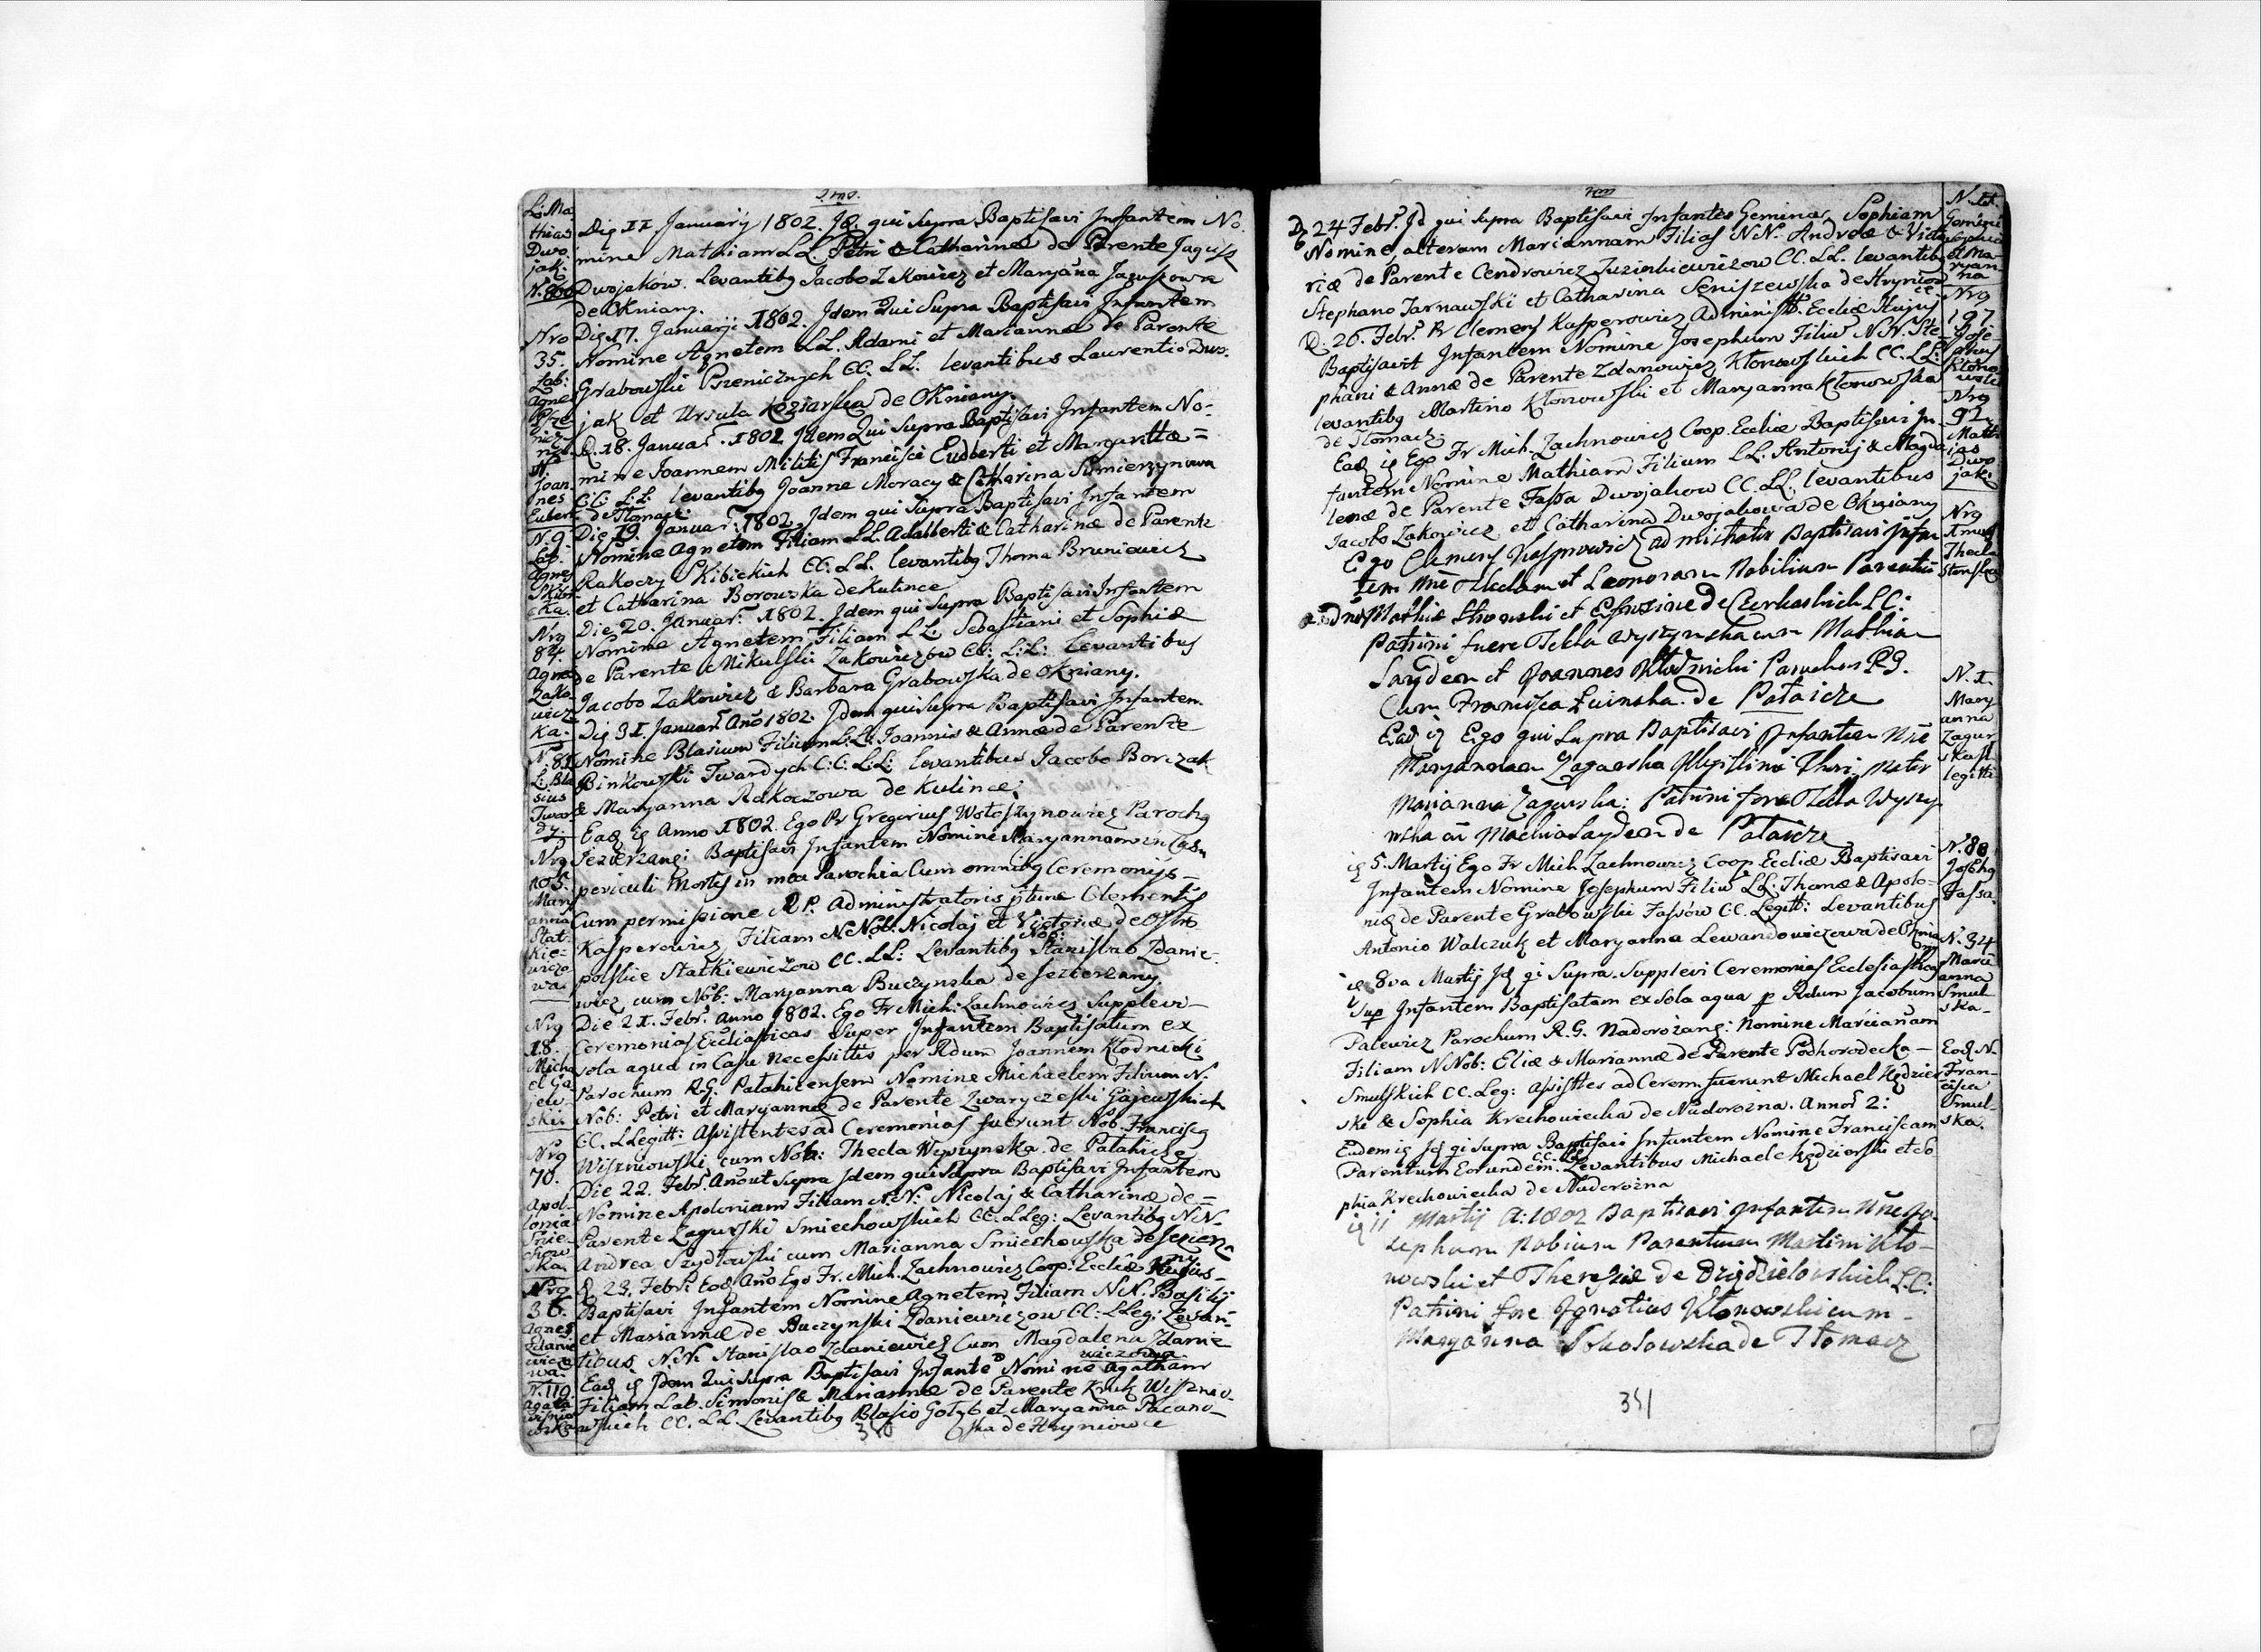 L: Ma
thias
Dwo
jak.
N. 800
Die 11 Januarÿ 1802. Jd. qui Supra Baptisavi Infantem No.
mine Mathiam LL. Petri & Catharinæ de Parente Jagusz
Dwojaków. Levantibg Jacobo Zakowicz et Maryana Jaguszowa
de Okniany.
Nro
35.
Lab:
Agne
Psze
nicz
na.
Die 17. Januarÿ 1802. Jdem Qui Supra Baptisavi Infantem
Nomine Agnetem LL. Adami et Mariannæ de Parente
Grabowskie Pszenicznych CC. LL. levantibus Laurentio Dwo.
jak et Ursula Koziarska de Okniany.
N.
Joan
nes
Eubert
D. 18. Januar. 1802 Jdem Qui Supra Baptisavi Infantem No-
mine Joannem Militis Francisci Eudberti et Margarittæ =
C:C: L:L: levantibg Joanne Moracy & Catharina Sumierzynowa
de Tłomacz.
N. 9
Lab.
Agnes
Skibi
cka.
Die 19. Januar: 1802. Jdem qui Supra Baptisavi Infantem
Nomine Agnetem Filiam LL. Adalberti & Catharinæ de Parente
Rakoczy Skibickich CC. LL. levantibg Thoma Bruniowicz
et Catharina Borowska de Kulince
Nrg
84.
Agne
Zako
wicz
Ka.
Die 20. Januar: 1802. Jdem qui Supra Baptisavi Infantem
Nomine Agnetem Filiam LL. Sebastiani et Sophiæ
de Parente Mikulskie Zakowiczow CC: L:L: Levantibus
Jacobo Zakowicz & Barbara Grabowska de Okniany.
N. 81
L: Bla
sius
Twar
dy.
Die 31. Januar Año 1802. Jdem qui Supra Baptisavi Infantem
Nomine Blasium Filium L:L: Joannis & Annæ de Parente
Binkowski Twardych C:C. L:L: levantibus Jacobo Borczak
& Maryanna Rakoczowa de Kulince.
Nrg
105.
Mary
anna
Stat-
kie-
wiczo
wa.
Eadę ię Anno 1802. Ego Pr Gregorius Wołoszynowicz Parochg
Jezierzang: Baptisavi Infantem Nomine Maryannam in Casu
periculi Mortis in mea Parochia Cum omnibg Ceremonÿs-
Cum permissione A. R. P. Administratoris ptunc Clementis
Kasperowicz Filiam N.Nob. Nicolaj et Victoriæ de Ostro
polskie Statkiewiczow CC. LL: Levantibg Nob: Stanislao Zdanie-
wicz cum Nob: Maryanna Buczynska de Jezierzany.
Nrg
18.
Micha
el Ga
jew-
ski.
Die 21. Febr. Anno 1802. Ego Fr Mich: Zachnowicz Supplevi-
Ceremonias Eccliasticas Super Infantem Baptisatum ex
sola aqua in Casu necessittis per Rdum Joannem Kłodnicki
Parochum R.G. Patahicensem Nomine Michaelem Filium N.
Nob: Petri et Maryannæ de Parente Zwaryczeski Gajewskich
CC. LLegitt: Assistentes ad Ceremonias fuerunt Nob. Franciscg
Wiszniowski cum Nob: Thecla Wyszynska de Patahicze
Nrg
70.
Apol-
lonia
Śmie-
chow
ska.
Die 22. Febr. Año ut Supra Jdem qui Supra Baptisavi Infantem
Nomine Apoloniam Filiam N.N: Nicolaj & Catharinæ de =
Parente Zagurski Smiechowskich CC. LLeg: Levantibg N.N-
Andrea Szydłowski cum Marianna Smiechowska de Jezierza
ny.
Nrg
36.
Agnes
Zdanie
wiczo
wa.
D. 23. Febr: Eod Año Ego Fr. Mich. Zachnowicz Coop: Eccliæ Hujus-
Baptisavi Infantem Nomine Agnetem Filiam N.N. Basilÿ
et Mariannæ de Buczynski Zdaniewiczow CC: LLeg: Levan-
tibus N.N. Stanislao Zdaniewicz Cum Magdalena Zdanie
wiczowa
N. 119
Agata
Wisnio
wska
Eadę ię Jdem Qui Supra Baptisavi Infante Nomine Agatham
Filiam Lab. Simonis & Mariannæ de Parente Kruk Wisznio-
wskich CC. LL. Levantibg Blasio Gołąb et Maryanna Pacano-
ska de Hryniowce
350
D. 24 Febr. Jd qui Supra Baptisavi Infantes Geminas, Sophiam
Nomine, alteram Mariannam Filias N.N. Andreæ & Victo
riæ de Parente Cendrowicz Juzinkiewiczow CC. LL. levantibg
Stephano Tarnawski et Catharina Seniszewska de Hryniow
ce
Gemini
Sophia
et Ma-
ryan-
na
D. 26. Febr. Pr Clemens Kasperowicz Administr. Eccliæ Hujus
Baptisavit Infantem Nomine Josephum Filiū N.N. Ste-
phani & Annæ de Parente Zdanowicz Kłonowskich CC. LL:
levantibg Martino Kłonowski et Maryanna Kłonowska
de Tłomacz.
Nrg
197
Jose-
phus
Kłono
wski
Eadę ię Ego Fr Mich. Zachnowicz Coop. Eccliæ Baptisavi In-
fantem Nomine Mathiam Filium LL. Antonÿ & Magda
lenæ de Parente Fassa Dwojakow CC. LL. levantibus
Jacobo Zakowicz et Catharina Dwojakowa de Okniany
Nrg
92
Math
ias
Dwo
jak.
Ego Clemens Kasprowicz admistrator Baptisavi Infan
tem nñe Theclam et Leonoram Nobilium Parentum
Mathiæ Stronski et Efrosine de Czerkaskich LC:
Patrini fuere Tekla Wyszynska cum Mathia
Sayden et Joannes Kłodnicki Parochus R.G.
Cum Francisca Łuinska de Pataicze
Nrg
Thecla
Stonska
Eadę ię Ego qui Supra Baptisavi Infantem Nñe
Maryannam Zagurska Illegittimi Thori, mater
Marianna Zagurska: Patrini fure Tekla Wyszy
nska cū Mathia Sayden de Pataicze
N. 1.
Mary
anna
Zagur
ska Il
legitti
ię 5. Martÿ Ego Fr Mich. Zachnowicz Coop Eccliæ Baptisavi
Infantem Nomine Josephum Filiū LL. Thomæ & Apolo-
niæ de Parente Grabowskie Fassów CC. Legitt: Levantibus
Antonio Walczuk et Maryanna Lewandowiczowa de Oknia
ny
N. 80
Josephg
Fassa
ię 8va Martÿ Jd qi Supra Supplevi Ceremonias Ecclesiasticas
Sup Infantem Baptisatam ex Sola aqua p Rdum Jacobum
Palewicz Parochum R.G. Nadorożang: Nomine Mariañam
Filiam N Nob: Eliæ & Mariannæ de Parente Podhorodecka-
Smulskich CC. Leg: Assisttes ad Cerem: fuerunt Michael Kędzier
ski & Sophia Krechowiecka de Nadorozna. Annor 2:
N. 34
Mari
anna
Smul-
ska-
Eadem ię Jd qi Supra Baptisavi Infantem Nomine Franciscam
Parentum Eorundem. CC. LL. Levantibus Michaele Kędzierski et So
phia Krechowiecka de Nadorozna
Eod N.
Fran-
cisca
Smul-
ska.
ię 11 Martÿ A: 1802 Baptisavi Infantem Nñe Jo-
sephum Nobium Parentum Martini Kło-
nowski et Theresiæ de Dzigdzielowskich L.C:
Patrini fure Ignatius Kłonowski cum-
Maryanna Sokołowska de Tłomacz
351